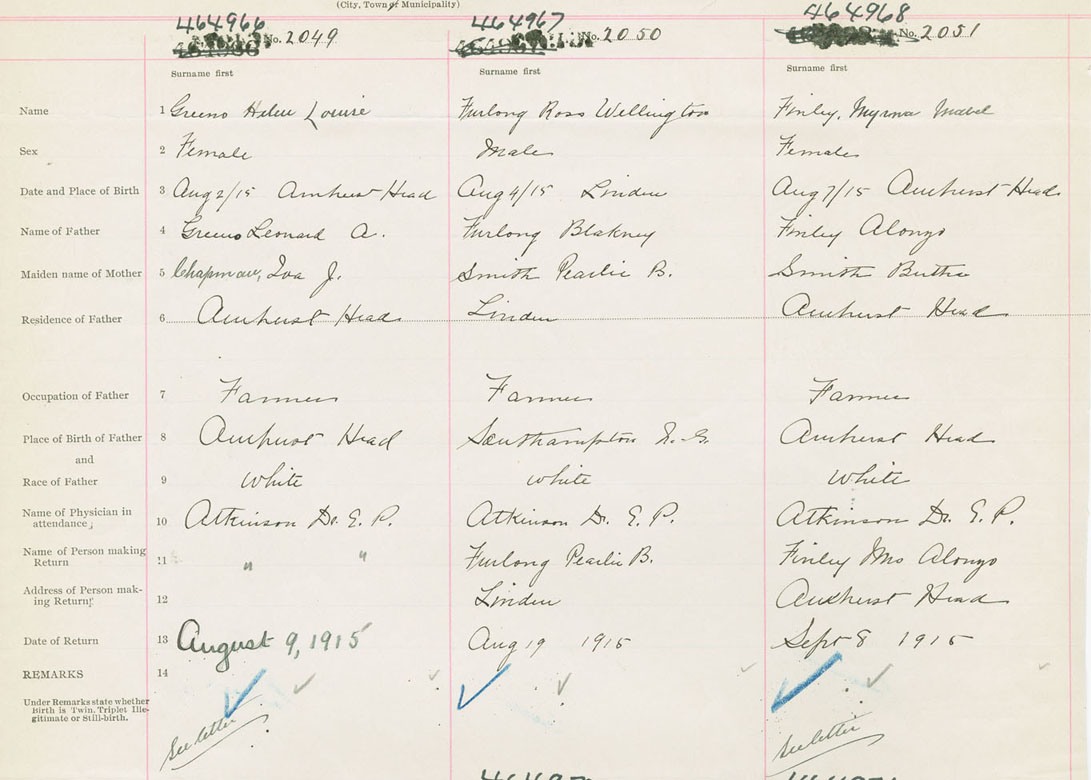 (City, Town or Municipality)
464966 464967 464968
No. 2049 No. 2050 No. 2051
Surname first Surname first Surname first
Name 1 Greeno Helen Louise Furlong Ross Wellington Finley, Myrna Mabel
Sex 2 Female Male Female
Date and Place of Birth 3 Aug 2/15 Amherst Head Aug 4/15 Linden Aug 7/15 Amherst Head
Name of Father 4 Greeno Leonard A. Furlong Blakney Finley Alonzo
Maiden name of Mother 5 Chapman, Iva J. Smith Pearlie B. Smith Bertha
Residence of Father 6 Amherst Head Linden Amherst Head
Occupation of Father 7 Farmer Farmer Farmer
Place of Birth of Father 8 Amherst Head Southampton N.S. Amherst Head
and
Race of Father 9 White White White
Name of Physician in
attendance, 10 Atkinson Dr. E. P. Atkinson Dr. E. P. Atkinson Dr. E. P.
Name of Person making
Return 11 " " Furlong Pearlie B. Finley Mrs Alonzo
Address of Person mak-
ing Return 12 Linden Amherst Head
Date of Return 13 August 9, 1915 Aug 19 1915 Sept 8 1915
REMARKS 14
Under Remarks state whether
Birth is Twin. Triplet Ille-
gitimate or Still-birth.
See letter See letter